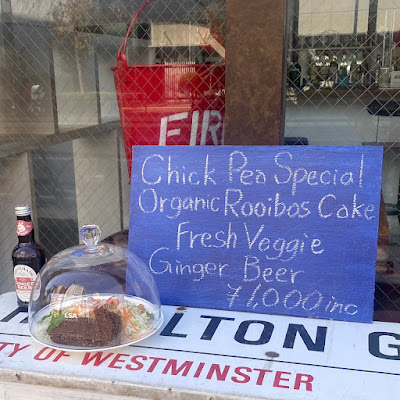 FIR
Chick Pea Special
Organic Rooibos Cake
Fresh Veggie
Ginger Beer
¥1,000 inc
LSA
HAMILTON G
TY OF WESTMINSTER